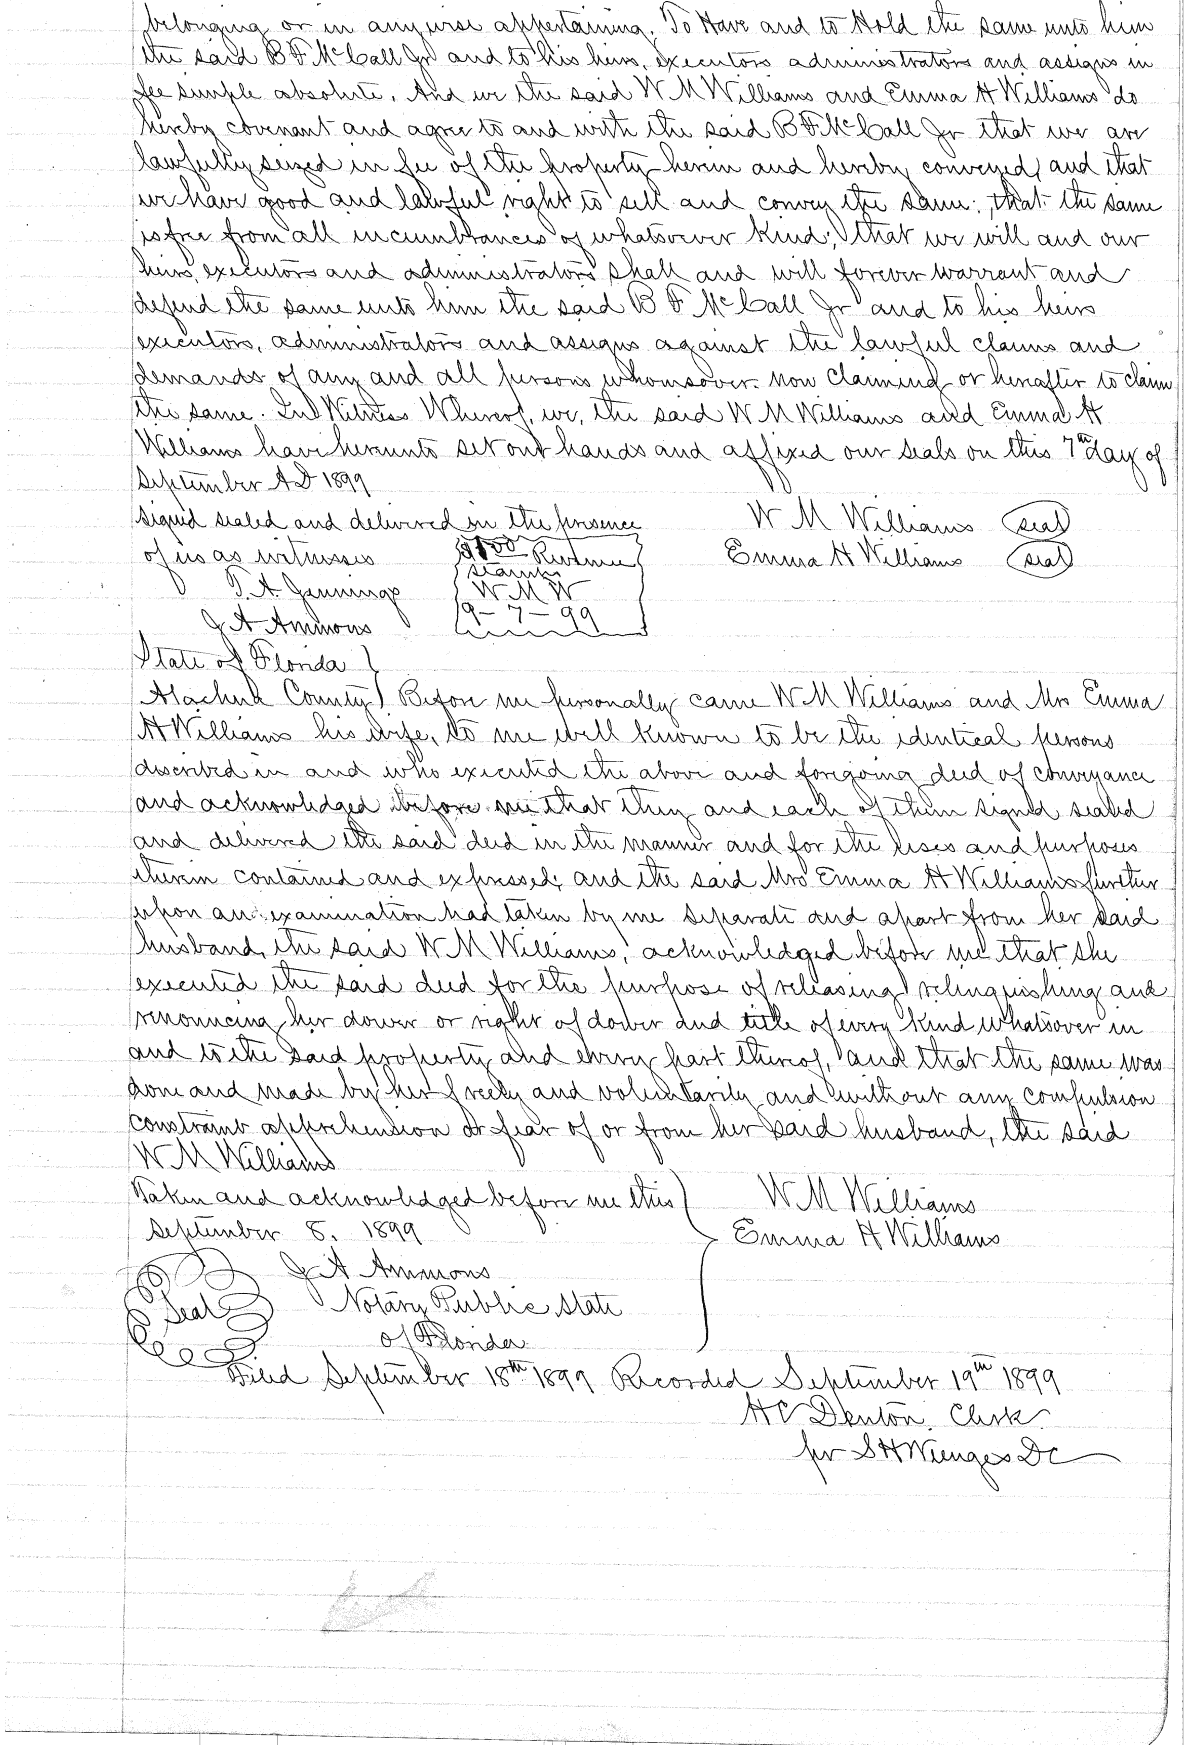 belonging or in any wise appertaining. To Have and to Hold the same unto him
the said B F McCall Jr and to his heirs, executors administrators and assigns in
fee simple absolute. And we the said W M Williams and Emma H Williams do
hereby covenant and agree to and with the said B F McCall Jr that we are
lawfully seized in fee of the property herein and hereby conveyed, and that
we have good and lawful right to sell and convey the same; that the same
is free from all incumbrances of whatsoever kind; that we will and our
heirs, executors and administrators shall and will forever warrant and
defend the same unto him the said B F McCall Jr and to his heirs
executors, administrators and assigns against the lawful claims and
demands of any and all persons whomsoever now claiming or hereafter to claim
the same. In Witness Whereof, we, the said W M Williams and Emma H
Williams have hereunto set our hands and affixed our seals on this 7th day of
September A D 1899
signed sealed and delivered in the presence W M Williams (seal)
of us as witnesses Revenue Emma H Williams (seal)
stamps
T. A. Jennings W M W
J A Ammons 9-7-99
State of Florida
Alachua County Before me personally came W M Williams and Mrs Emma
H Williams his wife, to me well known to be the identical persons
described in and who executed the above and foregoing deed of conveyance
and acknowledged before me that they and each of them signed sealed
and delivered the said deed in the manner and for the uses and purposes
therein contained and expressed; and the said Mrs Emma H Williams further
upon an examination had taken by me separate and apart from her said
husband, the said W M Williams, acknowledged before me that she
executed the said deed for the purpose of releasing, relinquishing and
renouncing her dower or right of dower and title of every kind whatsover in
and to the said property and every part thereof, and that the same was
done and made by her freely and voluntarily and without any compulsion
constraint apprehension or fear of or from her said husband, the said
W M Williams
Taken and acknowledged before me this W M Williams
September 8, 1899 Emma H Williams
J A Ammons
Seal Notary Public State
of Florida
Filed September 18th 1899 Recorded September 19th 1899
H C Denton, Clerk
per S H Wienges D C